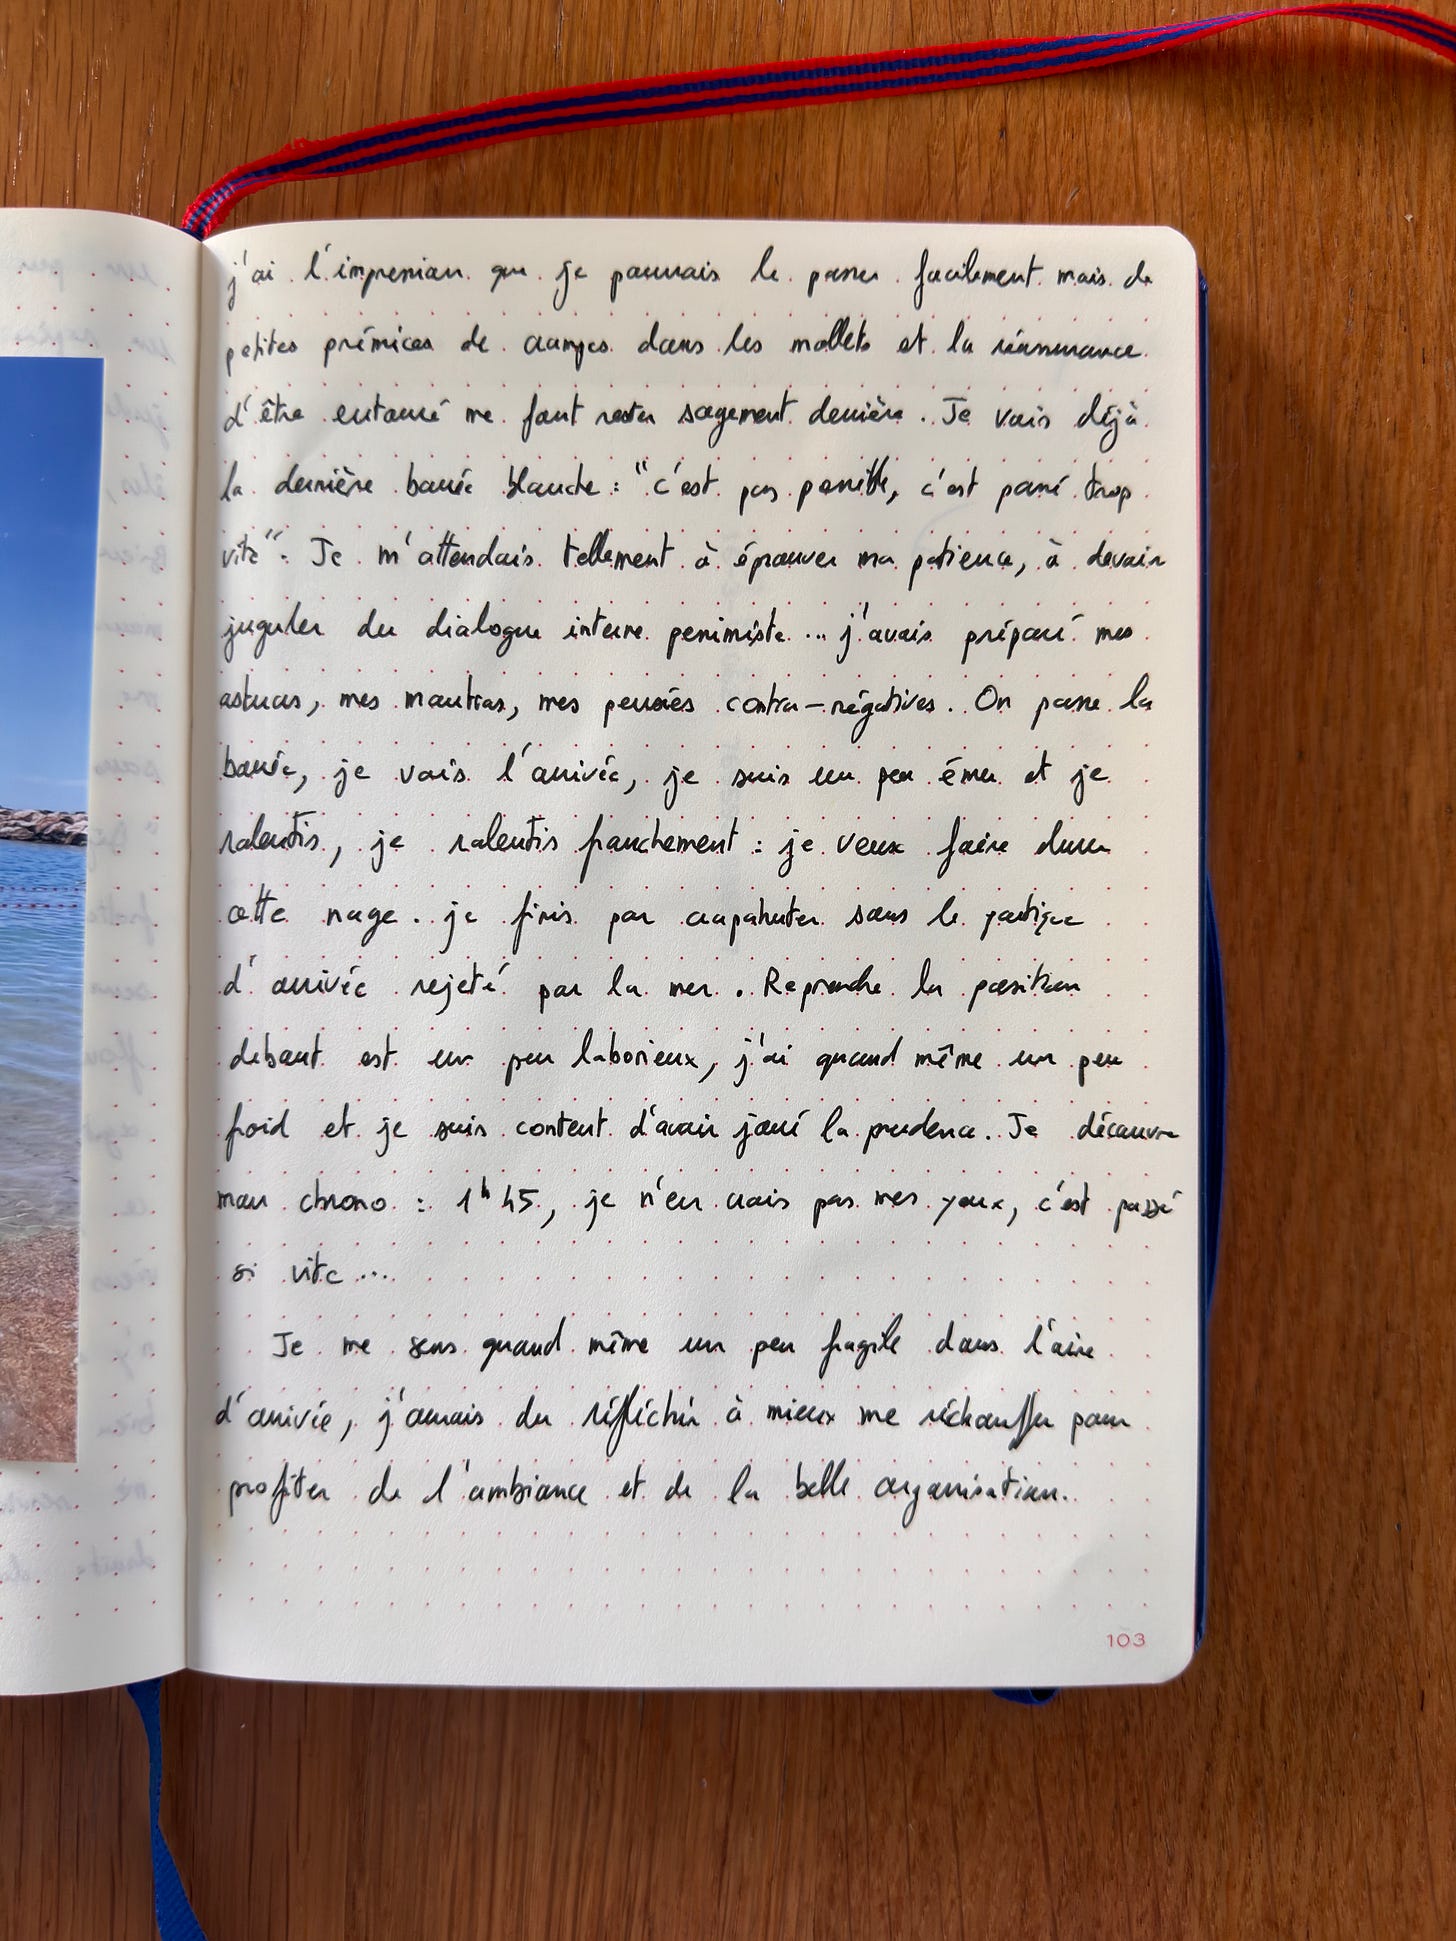 j'ai l'impression que je pourrais le passer facilement mais de
petites prémices de crampes dans les mollets et la réassurance
d'être entouré me font rester sagement derrière. Je vois déjà
la dernière bouée blanche : "c'est pas possible, c'est passé trop
vite". Je m'attendais tellement à éprouver ma patience, à devoir
juguler du dialogue interne pessimiste... j'avais préparé mes
astuces, mes mantras, mes pensées contra-négatives. On passe la
bouée, je vois l'arrivée, je suis un peu ému et je
ralentis, je ralentis franchement : je veux faire durer
cette nage. je finis par crapahuter sous le portique
d'arrivée rejeté par la mer. Reprendre la position
debout est un peu laborieux, j'ai quand même un peu
froid et je suis content d'avoir joué la prudence. Je découvre
mon chrono : 1h45, je n'en crois pas mes yeux, c'est passé
si vite...
Je me sens quand même un peu fragile dans l'aire
d'arrivée, j'aurais du réfléchir à mieux me réchauffer pour
profiter de l'ambiance et de la belle organisation.
103